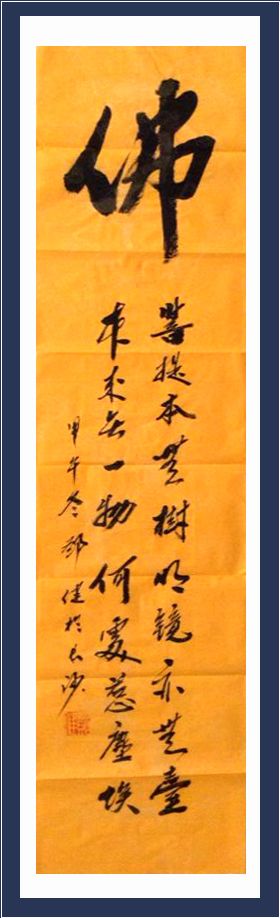 佛
菩提本無樹明鏡亦無臺
本来无一物何處惹塵埃
甲午冬佳於长沙